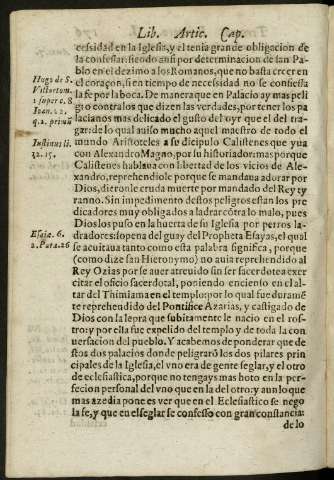 Lib. Artic. Cap.
cessidad en la Iglesia, y el tenia grande obligacion de
la confessar: siendo ansi por determinacion de san Pa-
blo en el dezimo a los Romanos, que no basta creer en
el coraçon, si en tiempo de necessidad no se confiessa
la fe por la boca. De manera que en Palacio ay mas peli
gro contra los que dizen las verdades, por tener los pa
lacianos mas delicado el gusto del oyr que el del tra-
gar: de lo qual auiso mucho aquel maestro de todo el
mundo Aristoteles a su dicipulo Calistenes que yua
con Alexandro Magno, por su historiador: mas porque
Calistenes hablaua con libertad de los vicios de Ale-
xandro, reprehendiole porque se mandaua adorar por
Dios, dieronle cruda muerte por mandado del Rey ty
ranno. Sin impedimento destos peligros estan los pre
dicadores muy obligados a ladrar cõtra lo malo, pues
Dios los puso en la huerta de su Iglesia por perros la-
dradores: so pena del guay del Propheta Esayas, el qual
se acuitaua tanto como esta palabra significa, porque
(como dize san Hieronymo) no auia reprehendido al
Rey Ozias por se auer atreuido sin ser sacerdote a exer
citar el oficio sacerdotal, poniendo encienso en el al-
tar del Thimiama en el templo: por lo qual fue duramẽ
te reprehendido del Pontifice Azarias, y castigado de
Dios con la lepra que subitamente le nacio en el ros-
tro: y por ella fue expelido del templo y de toda la con
uersacion del pueblo. Y acabemos de ponderar que de
stos dos palacios donde peligrarõ los dos pilares prin
cipales de la Iglesia, el vno era de gente seglar, y el otro
de eclesiastica, porque no tengays mas hoto en la per-
feccion personal del vno que en la del otro: y aun lo que
mas azedia pone es ver que en el Eclesiastico se nego
la fe, y que en el seglar se confesso con gran constancia:
de lo
Hugo de S.
Victor
Ioan. 22.
Iustinus li.
12. 15.
Esaiæ. 6.
2. Para. 26